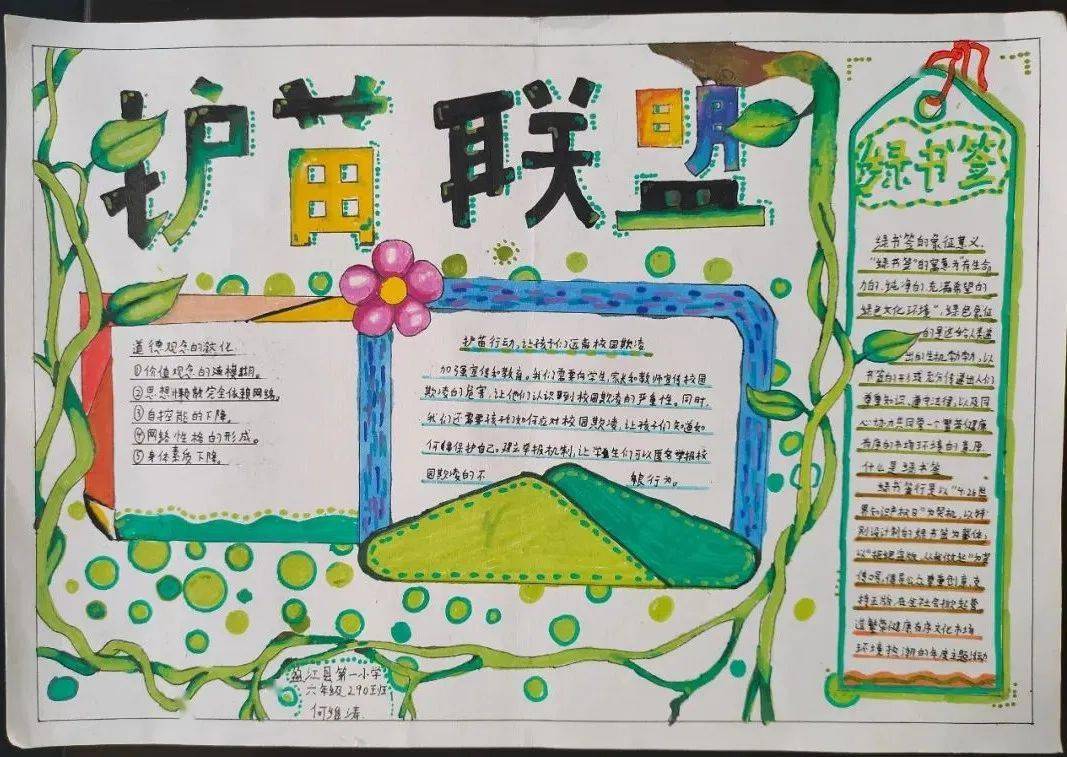 护苗联盟
道德观念的淡化
①价值观念的模糊。
②思想懒散完全依赖网络。
③自控能的下降。
④网络性格的形成。
⑤身体素质下降。
护苗行动,让孩子们远离校园欺凌
加强宣传和教育。我们需要向学生,家长和教师宣传校园
欺凌的危害,让他们认识到校园欺凌的严重性。同时,
我们还需要孩子们如何应对校园欺凌,让孩子们知道如
何保护自己,建立举报机制,让学生们可以匿名举报校
园欺凌的不 行为。
绿书签
绿书签的象征意义
“绿书签”的寓意为“有生命
力的,纯净的,充满希望的
绿色文化环境”,绿色象征
的是送给人类道
出的生机勃勃,以
书签的形式充分传递出人们
尊重知识,遵守法律,以及同
心协力共同营一个繁荣健康
有序的市场环境的意愿
什么是绿书签
绿书签行是以“4.26世
界知识产权日”为契机,以特
别设计制的绿书签为载体,
以“拒绝盗版,从我做起”为宣
传口号,倡导公众尊重创意,支
持正版,在全社会掀起营
造繁荣健康有序文化市场
环境 热潮的年度主题活动
盈江县第一小学
六年级290班
何维涛